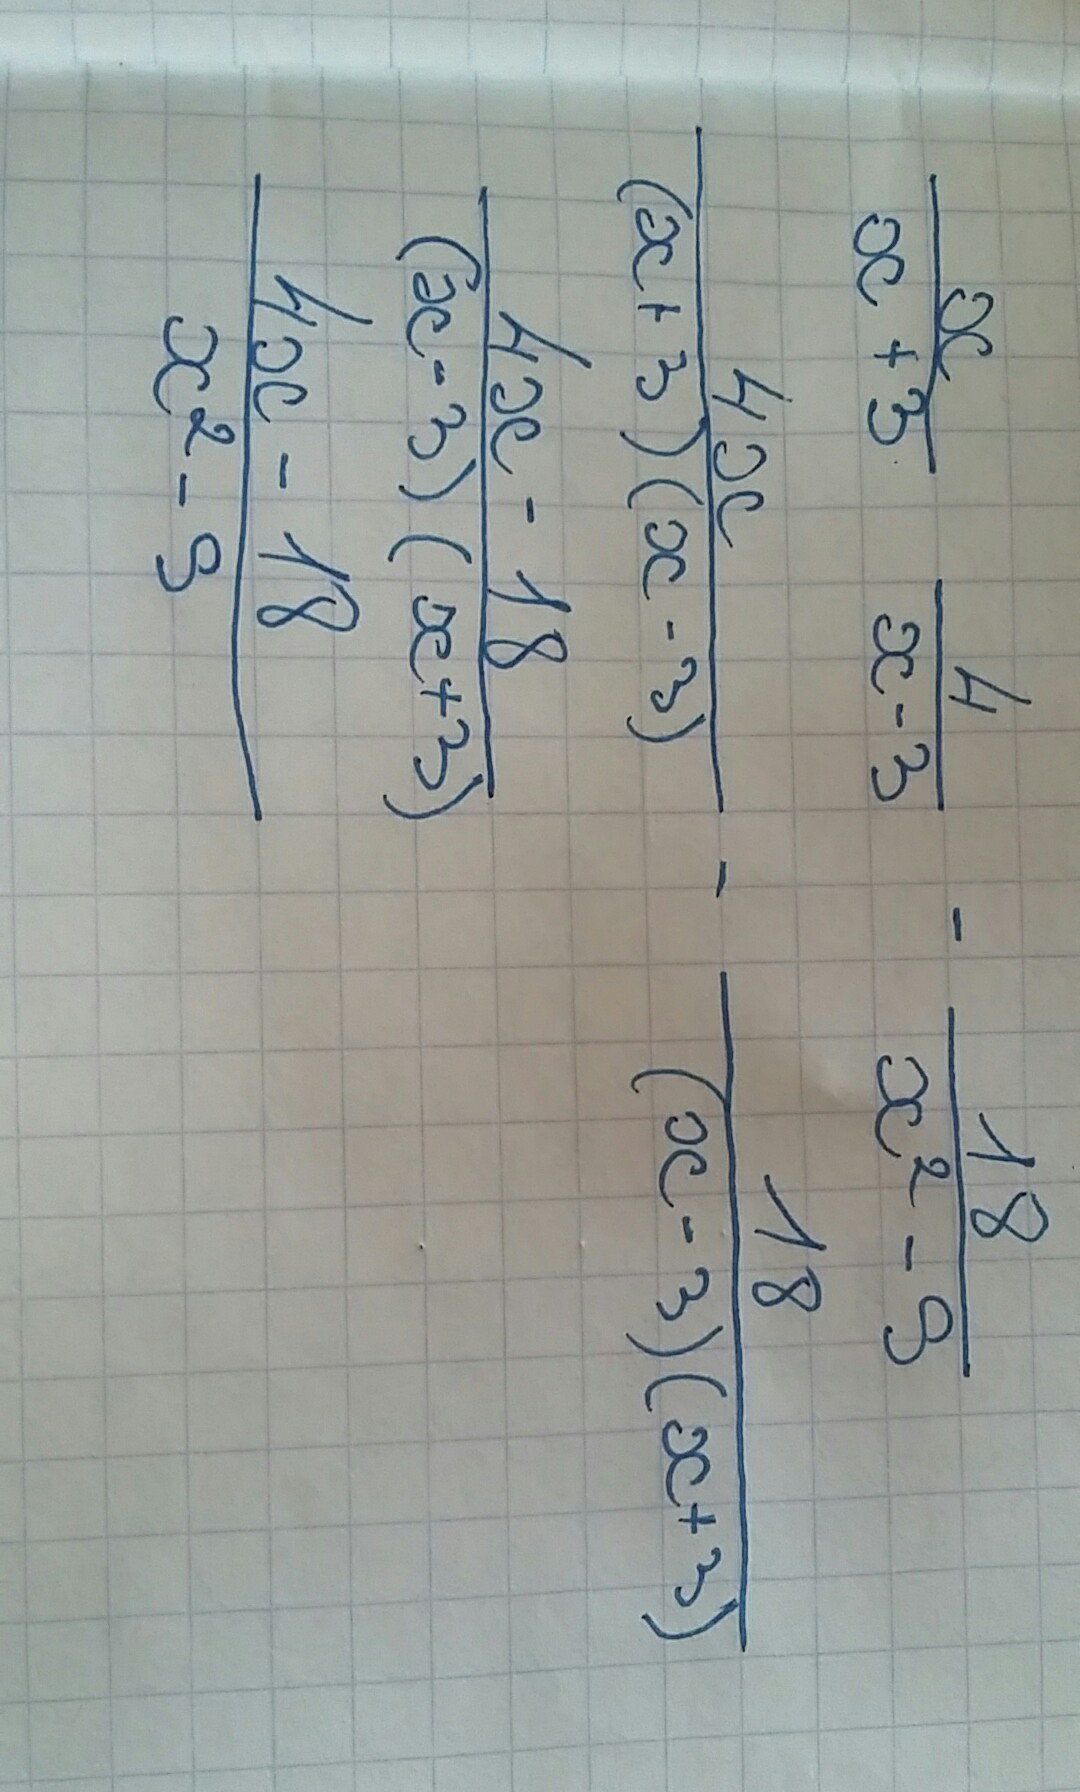 x/(x+3) 4/(x-3) - 18/(x²-9)
4x/((x+3)(x-3)) - 18/((x-3)(x+3))
(4x-18)/((x-3)(x+3))
(4x-18)/(x²-9)